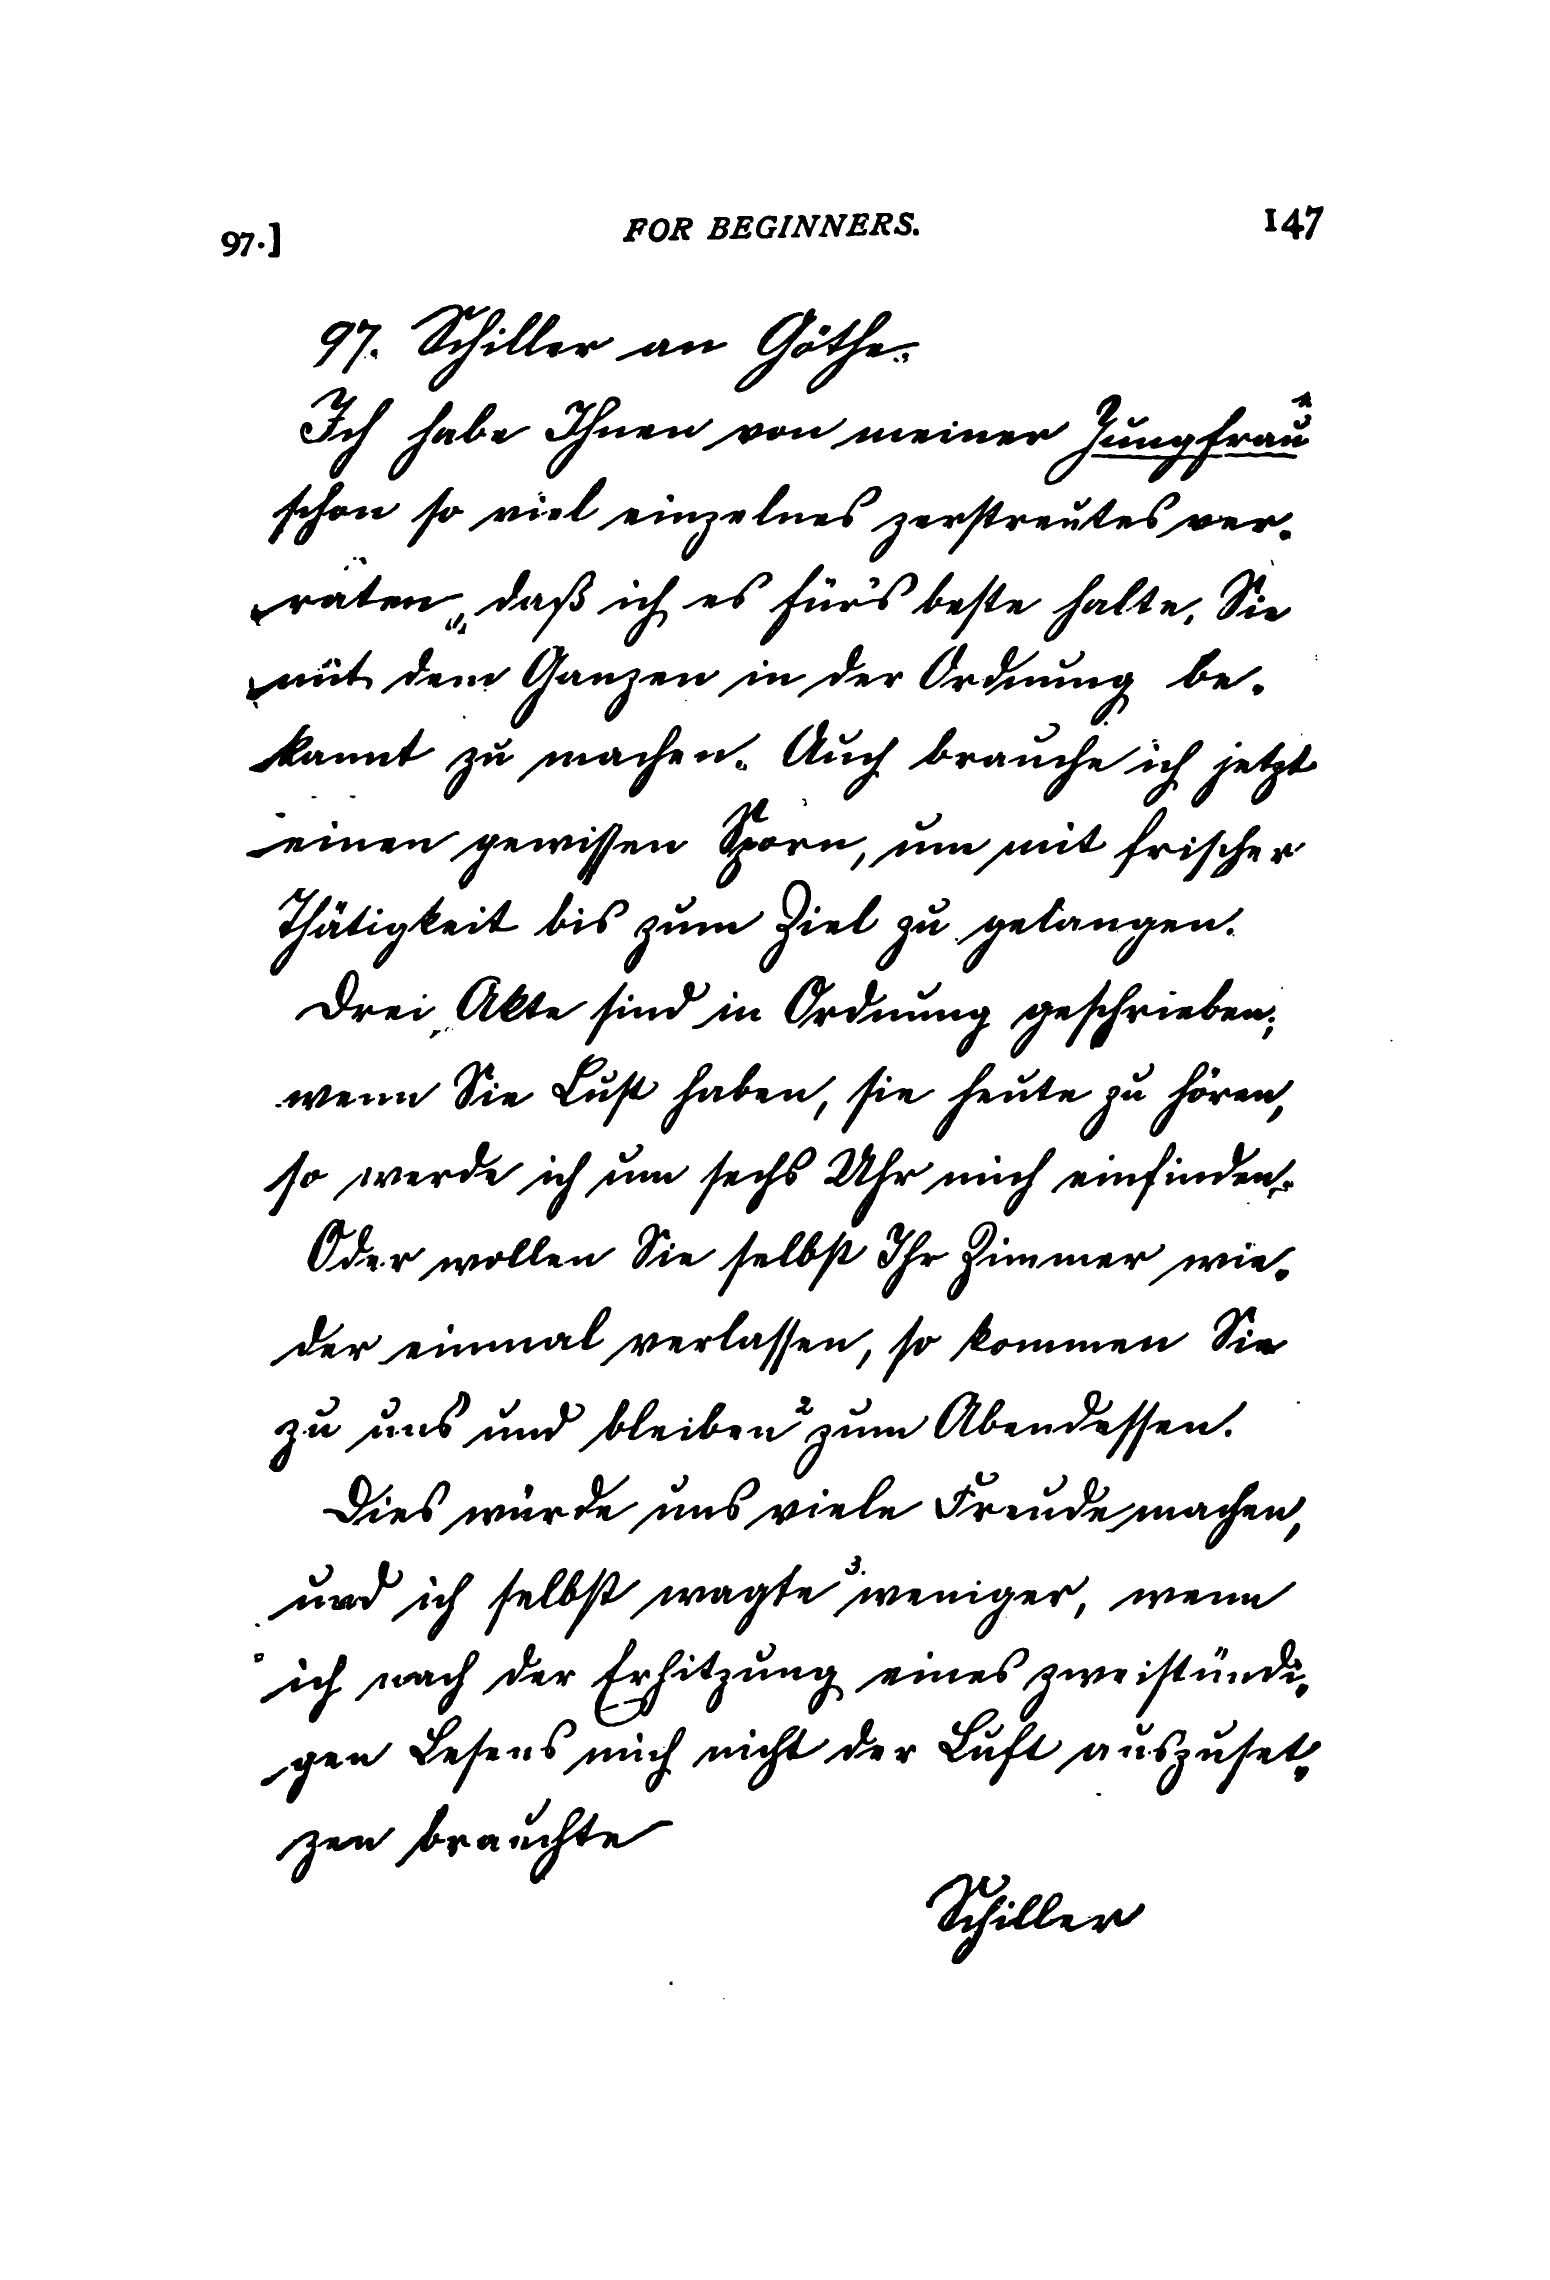 97.] FOR BEGINNERS. 147
97. Schiller an Göthe.
Ich habe Ihnen von meiner Jungfrau
schon so viel einzelnes zerstreutes ver-
raten, daß ich es für's beste halte, Sie
mit dem Ganzen in der Ordnung be-
kannt zu machen. Auch brauche ich jetzt
einen gewissen Sporn, um mit frischer
Thätigkeit bis zum Ziel zu gelangen.
Drei Akte sind in Ordnung geschrieben;
wenn Sie Lust haben, sie heute zu hören,
so werde ich um sechs Uhr mich einfinden.
Oder wollen Sie selbst Ihr Zimmer wie-
der einmal verlassen, so kommen Sie
zu uns und bleiben² zum Abendessen.
Dies würde uns viele Freude machen,
und ich selbst wagte³ weniger, wenn
ich nach der Erhitzung eines zweistündi-
gen Lesens mich nicht der Luft auszuset-
zen brauchte
Schiller